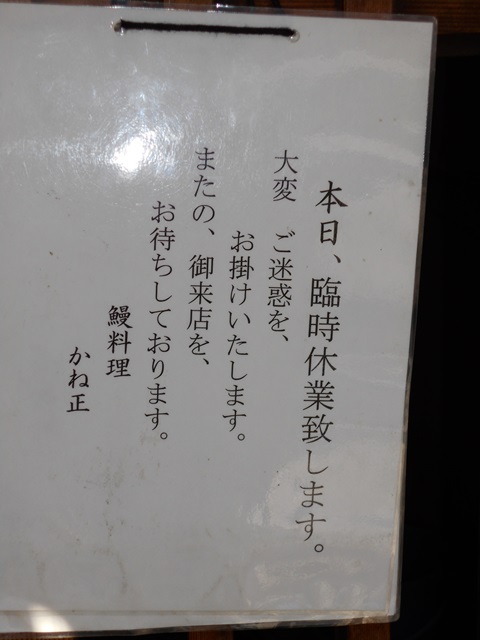 本日、臨時休業致します。
大変 ご迷惑を、
お掛けいたします。
またの、御来店を、
お待ちしております。
鰻料理
かね正